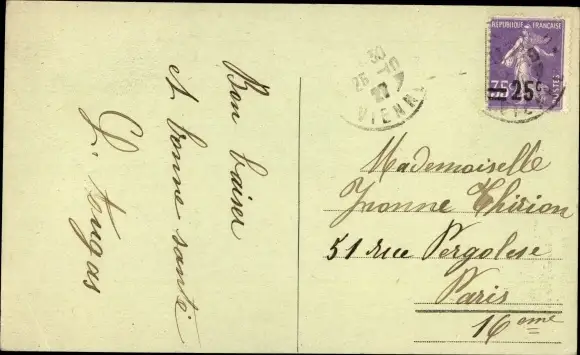 Bon baiser
et bonne santé
L. Augas
30
25-10
27
VIENN
REPUBLIQUE FRANÇAISE
35
25c
POSTES
Mademoiselle
Yvonne Thirion
51 rue Pergolese
Paris
16eme